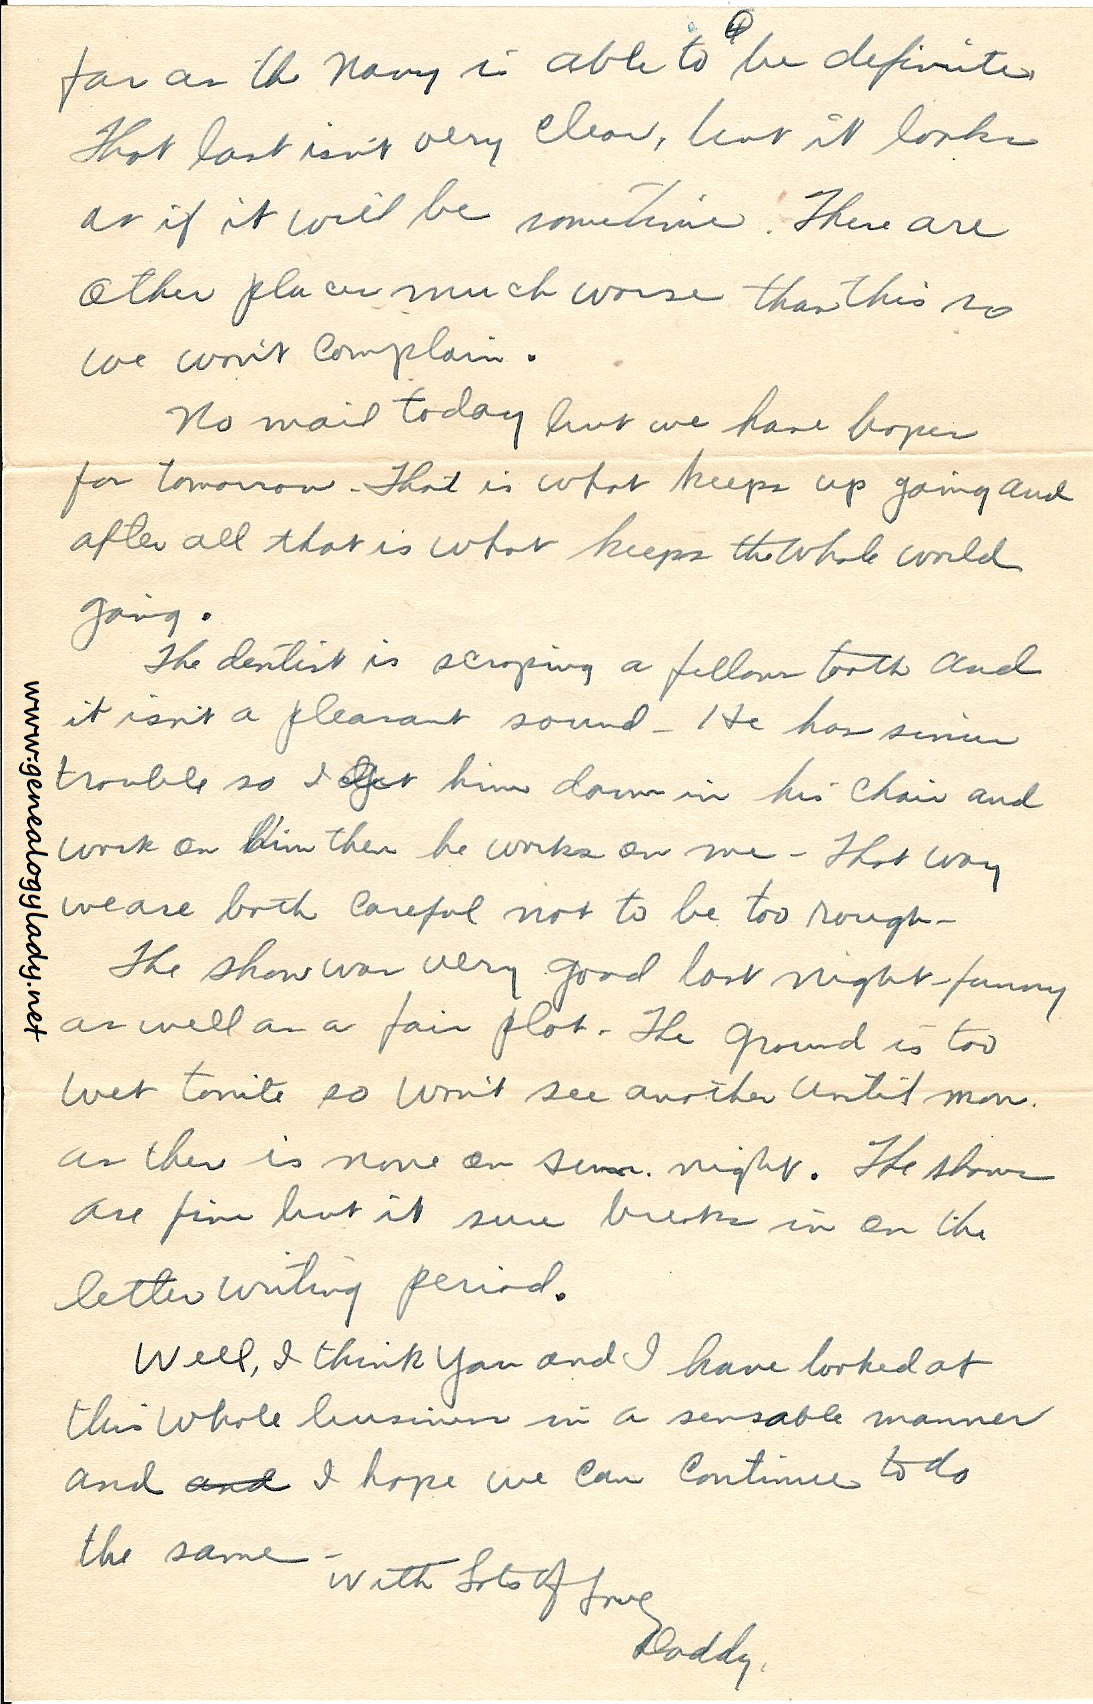 far as the Navy is able to be definite.
That last isn't very clear, but it looks
as if it will be sometime. There are
other places much worse than this so
we won't complain.
No mail today but we have hopes
for tomorrow. That is what keeps up going and
after all that is what keeps the whole world
going.
The dentist is scraping a fellows tooth and
it isn't a pleasant sound - He has sinus
trouble so I get him down in his chair and
work on him then he works on me - That way
we are both careful not to be too rough -
The show was very good last night - funny
as well as a fair plot. The ground is too
wet tonite so won't see another until Mon.
as there is none on Sun. night. The shows
are fine but it sure breaks in on the
letter writing period.
Well, I think you and I have looked at
this whole business in a sensable manner
and and I hope we can continue to do
the same -
With Lots of Love
Daddy.
www.genealogylady.net